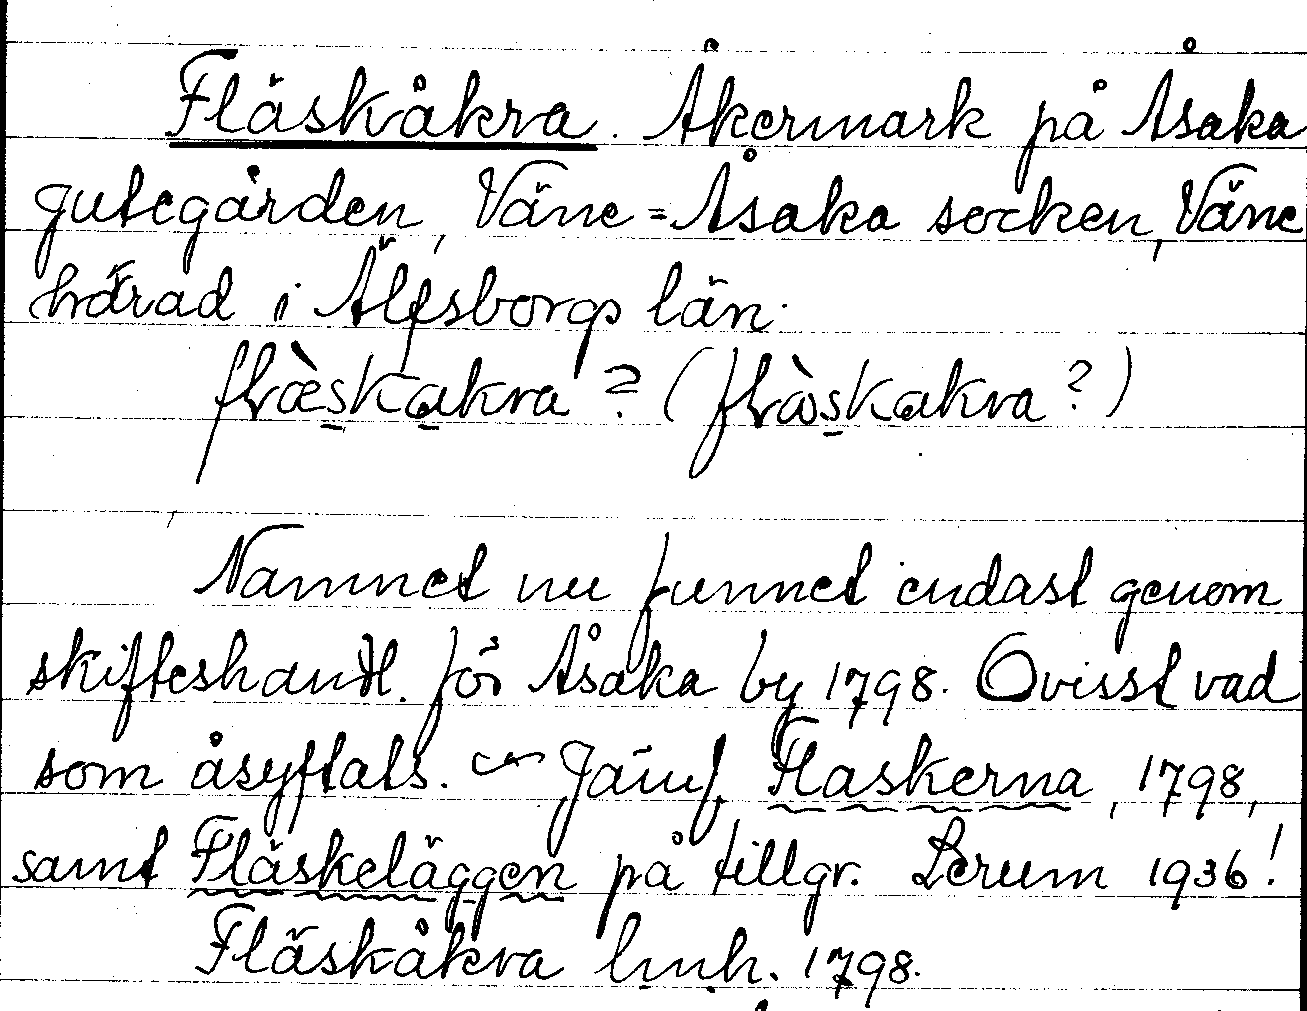 Fläskåkra. Åkermark på Åsaka
gutegården, Väne-Åsaka socken, Väne
härad i Älfsborgs län.
flæskakra? (flàskakra?)
Namnet nu funnet endast genom
skifteshandl. för Åsaka by 1798. Ovisst vad
som åsyftats. ~ Jämf. Flaskerna, 1798,
samt Fläskeläggen på tillgr. Lerum 1936!
Fläskåkra lmh. 1798.